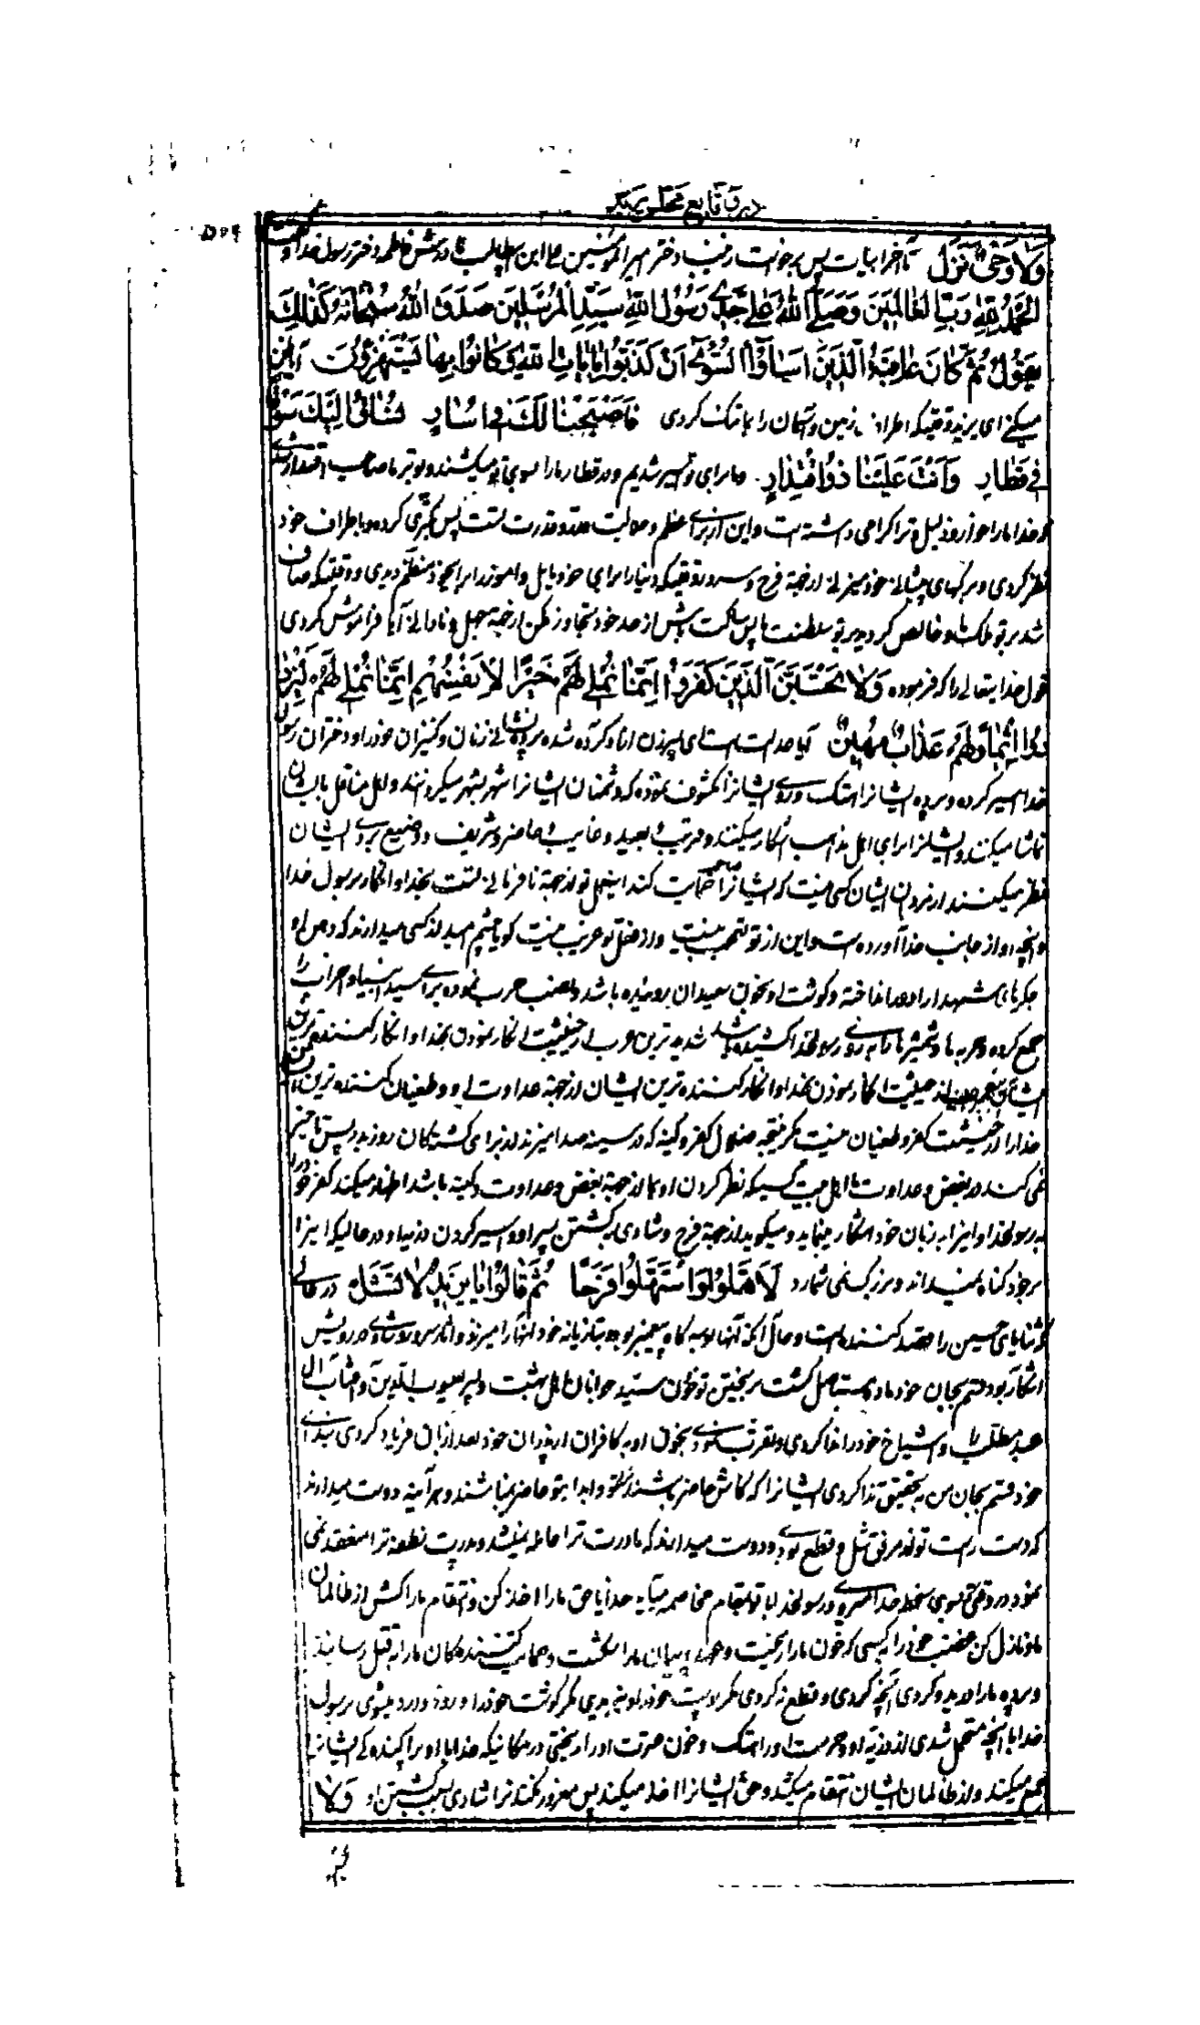 در وقایع مجلس یزید
۵۵۹
وَلا وَحْیٌ نَزَلَ تا آخر ابیات پس برخواست زینب دختر امیرالمؤمنین علی ابن ابیطالب و مادرش فاطمه دختر رسول خدا و گفت
اَلْحَمْدُ لِلّٰهِ رَبِّ الْعالَمینَ وَصَلَّی اللّٰهُ عَلی جَدّی رَسُولِ اللّٰهِ سَیِّدِ الْمُرْسَلینَ صَدَقَ اللّٰهُ سُبْحانَهُ کَذٰلِكَ
یَقُولُ ثُمَّ کانَ عاقِبَةُ الَّذینَ اَساؤُا السُّوآیٰ اَنْ کَذَّبُوا بِایاتِ اللّٰهِ وَکانُوا بِها یَسْتَهْزِؤُنَ
میکنی ای یزید وقتیکه اطراف زمین و آسمان را بما تنک کردی فَاَصْبَحْنا لَكَ فی اُسارٍ نُساقُ اِلَیْكَ سَوْقًا
فی قِطارٍ وَاَنْتَ عَلَیْنا ذُو اقْتِدارٍ و ما برای تو اسیر شدیم و در قطار ما را بسوی تو میکشند و تو بر ما صاحب اقتدار
خدا ما را خوار و ذلیل و ترا گرامی داشته است و این از برای عظم و جلالت قدر و قدرت تست پس تکبری کرده و باطراف خود
نظر کردی و برگهای خود میزنی از جهة فرح و سرور وقتیکه دنیا را برای خود مایل و امور را برای خود منظم دیدی و وقتیکه صاف
شد بر تو ملك ما و خالص گردید بر تو سلطنت ما پس ساکت باش از حد خود تجاوز مکن از جهة جهل و نادانی آیا فراموش کردی
قول خدایتعالی را که فرموده وَلا یَحْسَبَنَّ الَّذینَ کَفَرُوا اِنَّما نُمْلی لَهُمْ خَیْرًا لِاَنْفُسِهِمْ اِنَّما نُمْلی لَهُمْ لِیَزْدا
دُوا اِثْمًا وَلَهُمْ عَذابٌ مُهینٌ آیا عدالت است ای پسر زن آزاد کرده شده زنان و کنیزان خود را و دختران رسول
خدا اسیر کرده و پرده ایشانرا هتك و روی ایشانرا مکشوف نموده که دشمنان ایشانرا شهر بشهر میگردانند و اهل مناقل بایشان
تماشا میکنند و قریب و بعید و غایب و حاضر و شریف و وضیع بروی ایشان
نظر میکنند از مردان ایشان کسی نیست که ایشانرا حمایت کند اینهمه تو از جهة نافرمانی تست بخدا و انکار برسول خدا
و آنچه او از جانب خدا آورده است و این از تو تعجب نیست و از فعل تو غریب نیست کی چشم امید از کسی میدارند که دهن او
جگرهای شهدا را انداخته و گوشت او بخون سعیدان روئیده باشد و نصب حرب نموده برای سید انبیا و احزاب را
جمع کرده و حربه ها و شمشیرها را بر روی رسولخدا کشیده باشد شدیدترین عرب از حیثیت انکار نمودن بخدا و انکار کننده ترین
از حیثیت انکار نمودن بخدا و انکار کننده ترین ایشان از جهة عداوت و طغیان کننده ترین
خدا را از حیثیت کفر و طغیان نیست مگر نتیجه کفر و کینه که در سینه صدا میزند از برای کشتگان روز بدر پس تاخیر
نمی کند در بغض و عداوت ما اهل بیت کسیکه نظر کردن او بما از جهة بغض و عداوت و کینه باشد اظهار میکند کفر خود را
برسولخدا و اینرا بزبان خود آشکار مینماید و میگوید از جهة فرح و شادی بکشتن پسر او و اسیر کردن ذریه او در حالیکه اینرا
بر خود گناه نمیداند و بزرگ نمی شمارد لَاَهَلُّوا وَاسْتَهَلُّوا فَرَحًا ثُمَّ قالُوا یا یَزیدُ لا تُشَلْ در حالی
که ثنایای حسین را قصد کننده است و حال آنکه آنها بوسه گاه پیغمبر بود بتازیانه خود آنها را میزند و آثار سرور و شادی در رویش
آشکار بود قسم بجان خود ماده مستاصل گشت بریختن تو خون سید جوانان اهل بهشت و پسر یعسوب الدین و آفتاب آل
عبدالمطلب را و اشیاخ خود را ندا کردی و تقرب نمودی بخون او بکافران از پدران خود بعد از آن فریاد کردی بندای
خود قسم بجان من بتحقیق ندا کردی ایشانرا که کاش حاضر باشند و ابدا بتو حاضر نباشند و هر آینه دوست میدارند
که دست راست تو از مرفق شل و قطع بودی و دوست میدارند که مادرت ترا حامله نمیشد و پدرت نطفه ترا منعقد نمی
نمود در وقتی که بسوی سخط خدا میروی و رسولخدا با تو بمقام مخاصمه میآید خدایا حق ما را اخذ کن و انتقام ما را بکش از ظالمان
ما و نازل کن غضب خود را بکسی که خون ما را ریخت و ما را شکست و حمایت کنندگان ما را بقتل رسانید
و پرده ما را درید و کردی آنچه کردی و قطع نه کردی مگر پوست خود را و نبریدی مگر گوشت خود را و زود وارد میشوی برسول
خدا با آنچه متحمل شدی از ذریه او و حرمت او را هتك و خون عترت او را ریختی در مکانیکه خدا با او پراکندگی ایشانرا
جمع میکند و از ظالمان ایشان انتقام میکشد و حق ایشانرا اخذ میکند پس مغرور نکند ترا شادی بسبب کشتن او وَلا